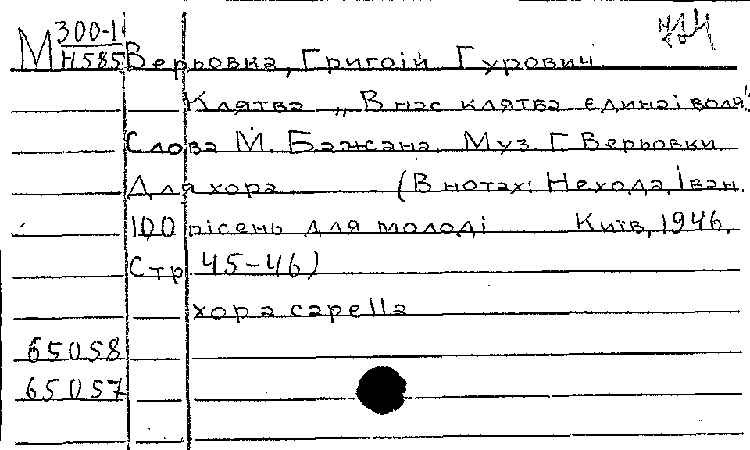 М 300-1
Н585 Верьовка, Григоій Гурович
Клятва „В нас клятва єдина і воля"
Слова М. Бажана. Муз. Г. Верьовки.
Для хора (В нотах: Нехода, Іван.
100 пісень для молоді Київ, 1946.
Стр 45-46)
хор a capella
65058
65057